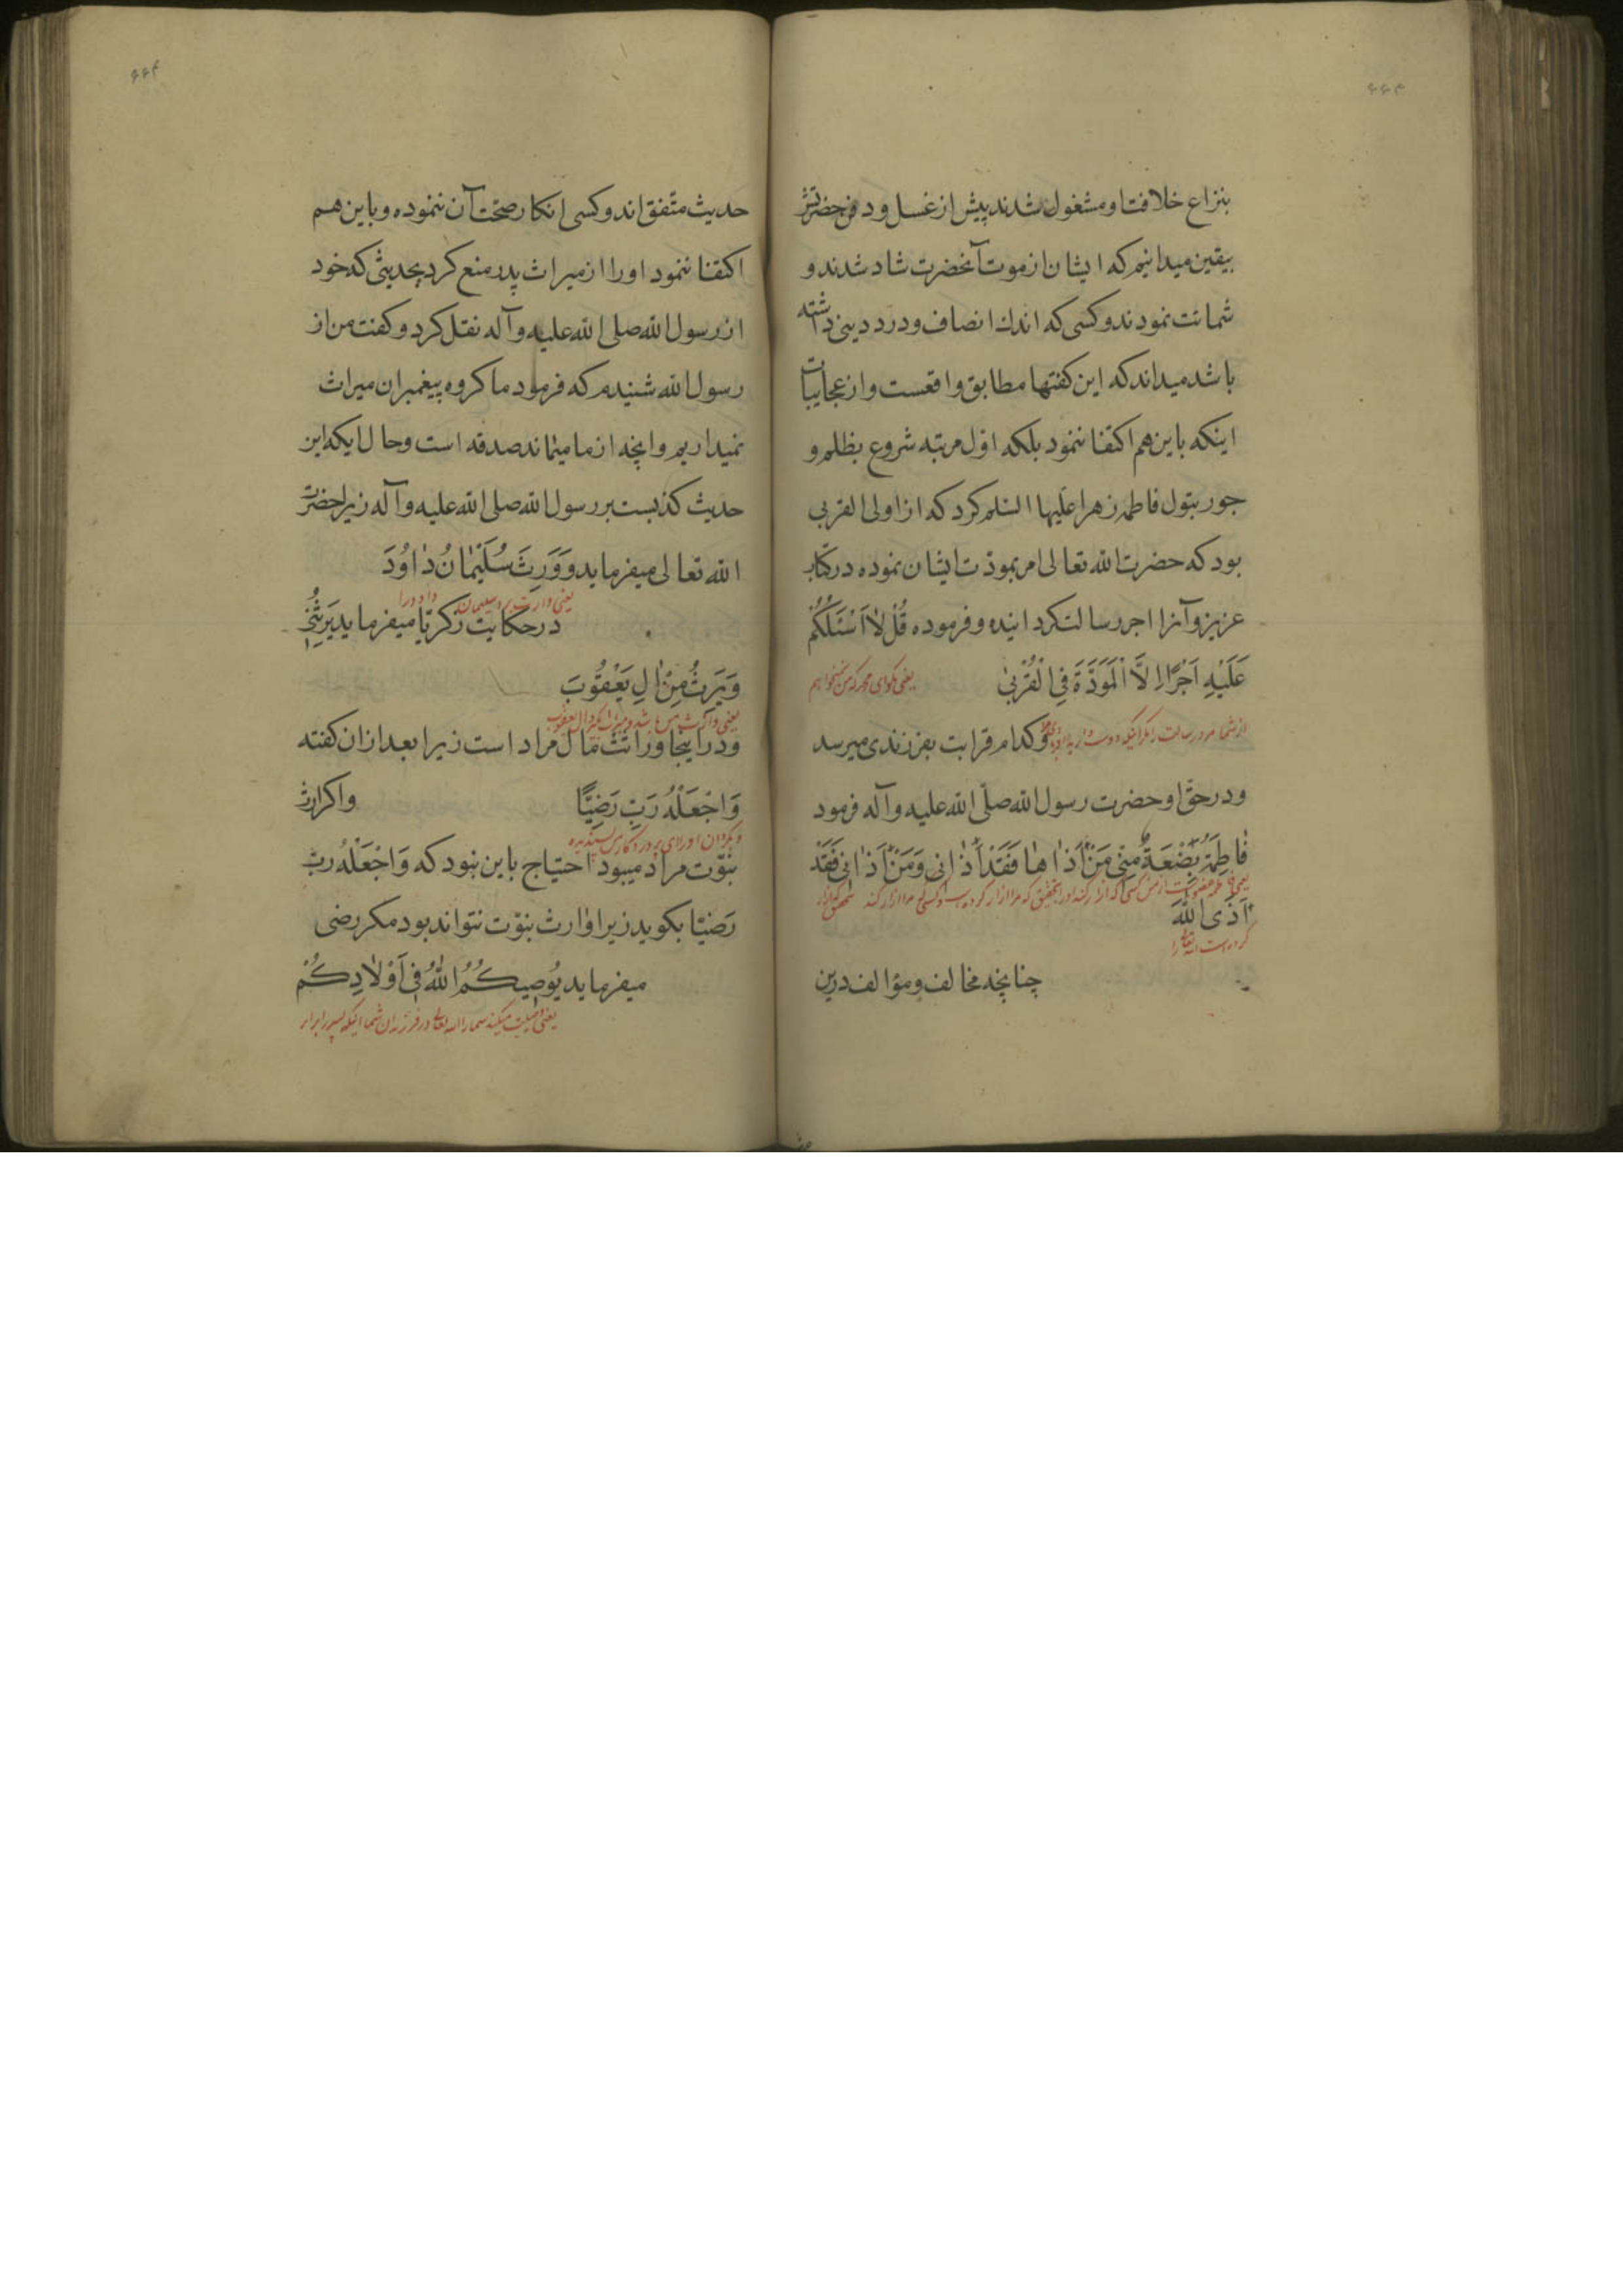 ۴۴۳
بنزاع خلافت او مشغول شدند پیش از غسل و دفن حضرتش
بیقین میدانیم که ایشان از موت آنحضرت شاد شدند و
شماتت نمودند و کسی که اندك انصاف و درد دینی داشته
باشد میداند که این کفتها مطابق واقعست و از عجایبات
اینکه باین هم اکتفا ننمود بلکه اوّل مرتبه شروع بظلم و
جور بتول فاطمه زهرا علیها السّلم کرد که از اولی القربی
بود که حضرت الله تعالی امر بمودّت ایشان نموده در کتاب
عزیز و آنرا اجر رسالت کردانیده و فرموده قُلْ لَا اَسْئَلُكُمْ
عَلَيْهِ اَجْرًا اِلَّا الْمَوَدَّةَ فِی الْقُرْبیٰ یعنی بکو ای محمد که من نمیخواهم
از شما مزد رسالت را مکر آنیکه دوست دارید و کدام قرابت بفرزندی میرسد
و در حق او حضرت رسول الله صلّی الله علیه و آله فرمود
فٰاطِمَةُ بَضْعَةٌ مِنّی مَنْ اٰذٰاهٰا فَقَدْ اٰذٰانی وَمَنْ اٰذٰانی فَقَدْ
یعنی فاطمه عضویست از من کسی که آزار کند او را بتحقیق که مرا آزار کرده است و کسی که مرا آزار کند بتحقیق که آزار
اٰذَی اللّٰهَ
کرده است الله تعالی را
چنانچه مخالف و مؤالف درین
۴۴۴
حدیث متّفق اند و کسی انکار صحّت آن ننموده و باین هم
اکتفا ننمود او را از میراث پدر منع کرد بحدیثی که خود
از رسول الله صلی الله علیه و آله نقل کرد و کفت من از
رسول الله شنیدم که فرمود ما کروه پیغمبران میراث
نمیداریم و انچه از ما میماند صدقه است و حال ایکه این
حدیث کذبست بر رسول الله صلی الله علیه و آله زیرا حضرت
الله تعالی میفرماید وَ وَرِثَ سُلَيْمٰانُ دٰاوُدَ
یعنی وارث برد سلیمان داود را
در حکایت زکریّا میفرماید یَرِثُنِی
وَیَرِثُ مِنْ اٰلِ یَعْقُوبَ
یعنی وارث من باشد و میراث بکیرد از آل یعقوب
و در اینجا وراثت مال مراد است زیرا بعد از ان کفته
وَاجْعَلْهُ رَبِّ رَضِیًّا واکر ارث
و بکردان او را ای پروردکار من پسندیده
نبوّت مراد میبود احتیاج باین نبود که وَاجْعَلْهُ رَبِّ
رَضیّا بکوید زیرا وارث نبوّت نتواند بود مکر رضی
میفرماید یُوصیکُمُ اللّٰهُ فی اَوْلٰادِکُمْ
یعنی وصیت میکند شما را الله تعالی در فرزندان شما اینکه پسر را برابر